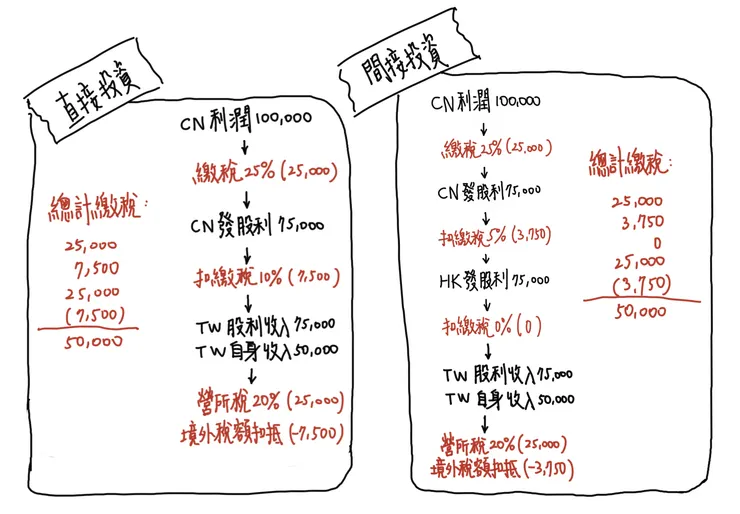 直接投資
CN 利潤 100,000
↓
繳稅 25% (25,000)
↓
CN 發股利 75,000
↓
扣繳稅 10% (7,500)
↓
TW 股利收入 75,000
TW 自身收入 50,000
↓
營所稅 20% (25,000)
境外稅額扣抵 (-7,500)
總計繳稅:
25,000
7,500
25,000
(7,500)
50,000
間接投資
CN 利潤 100,000
↓
繳稅 25% (25,000)
↓
CN 發股利 75,000
↓
扣繳稅 5% (3,750)
↓
HK 發股利 75,000
↓
扣繳稅 0% (0)
↓
TW 股利收入 75,000
TW 自身收入 50,000
↓
營所稅 20% (25,000)
境外稅額扣抵 (-3,750)
總計繳稅:
25,000
3,750
0
25,000
(3,750)
50,000